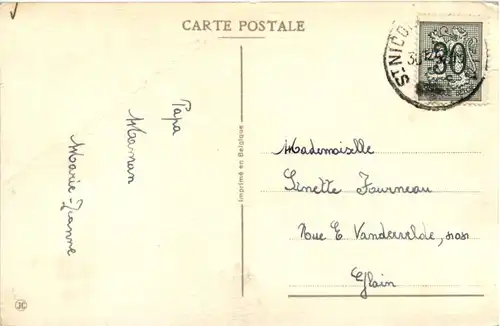 CARTE POSTALE
ST-NICO
30
Papa
Maman
Marie-Jeanne
Imprimé en Belgique
Mademoiselle
Ginette Fourneau
Rue E. Vandervelde,
Glain